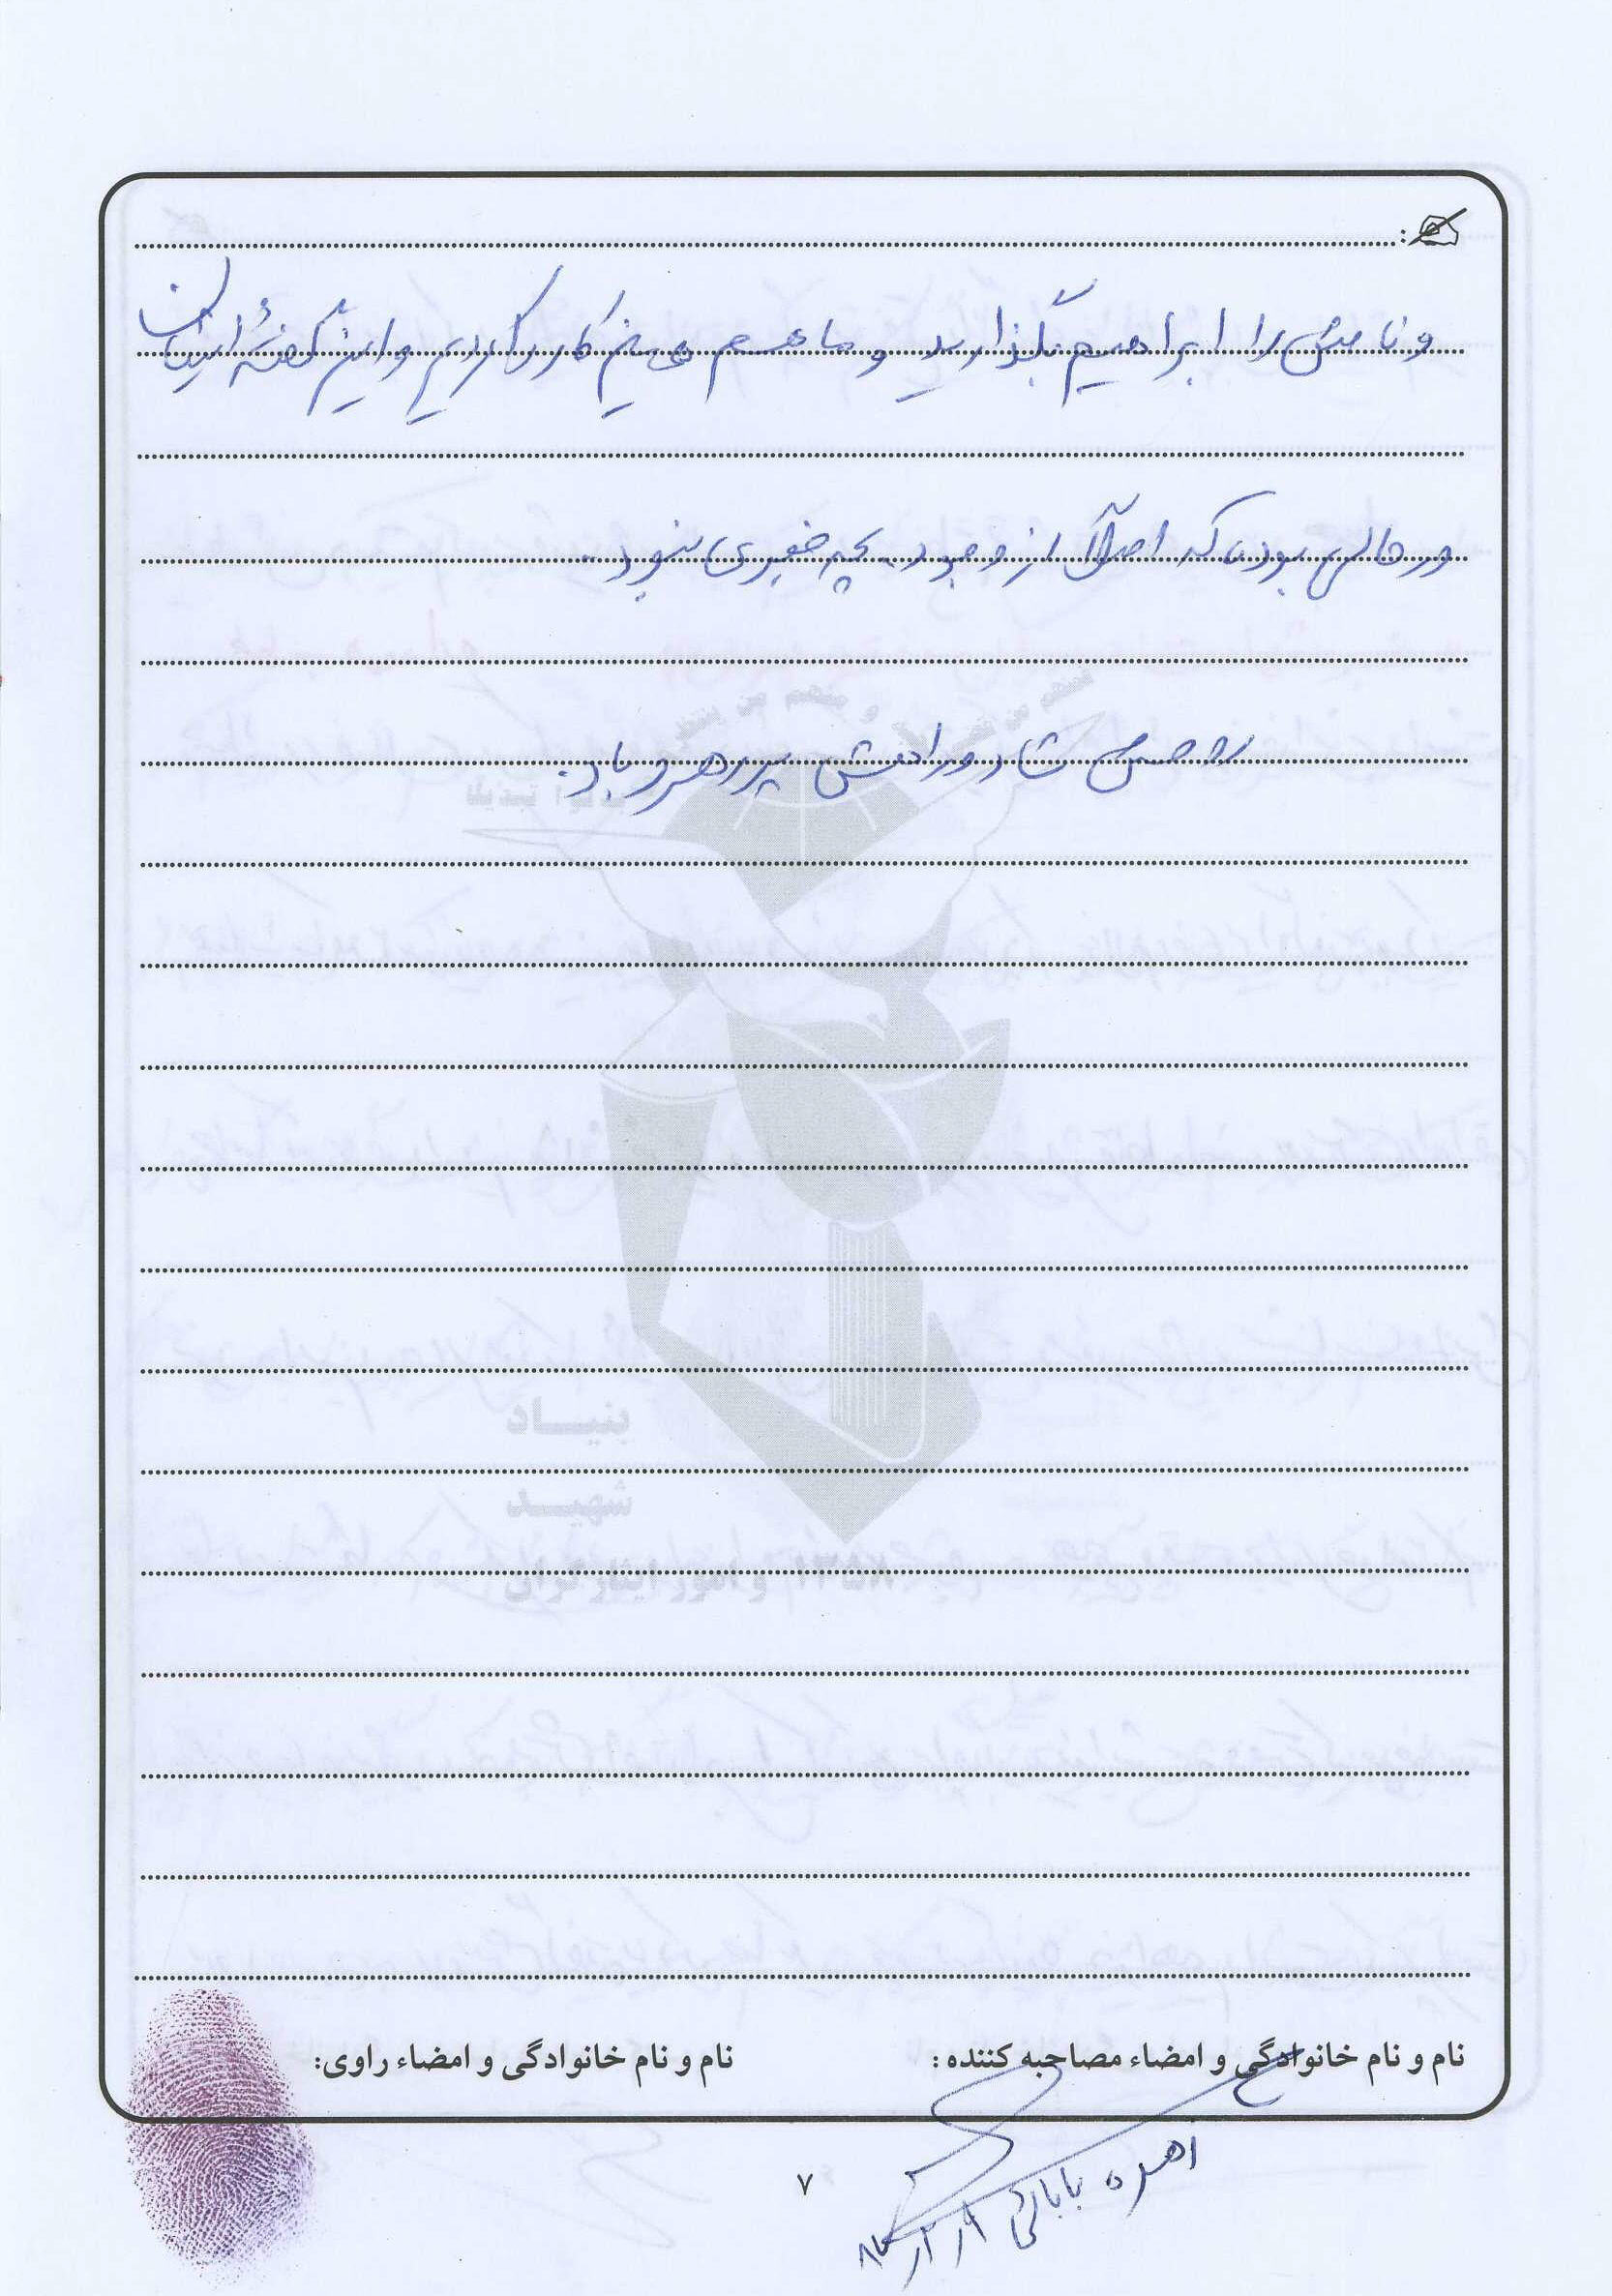 و نامش را ابراهیم بگذارید و ما هم همین کار را کردیم و این گفتهٔ ایشان
در حالی بود که اصلاً از وجود بچه خبری نبود.
روحش شاد و راهش پر رهرو باد.
بنیاد
شهید
و امور ایثارگران ۱۳۵۸
نام و نام خانوادگی و امضاء مصاحبه کننده:
نام و نام خانوادگی و امضاء راوی:
بابائی
۷